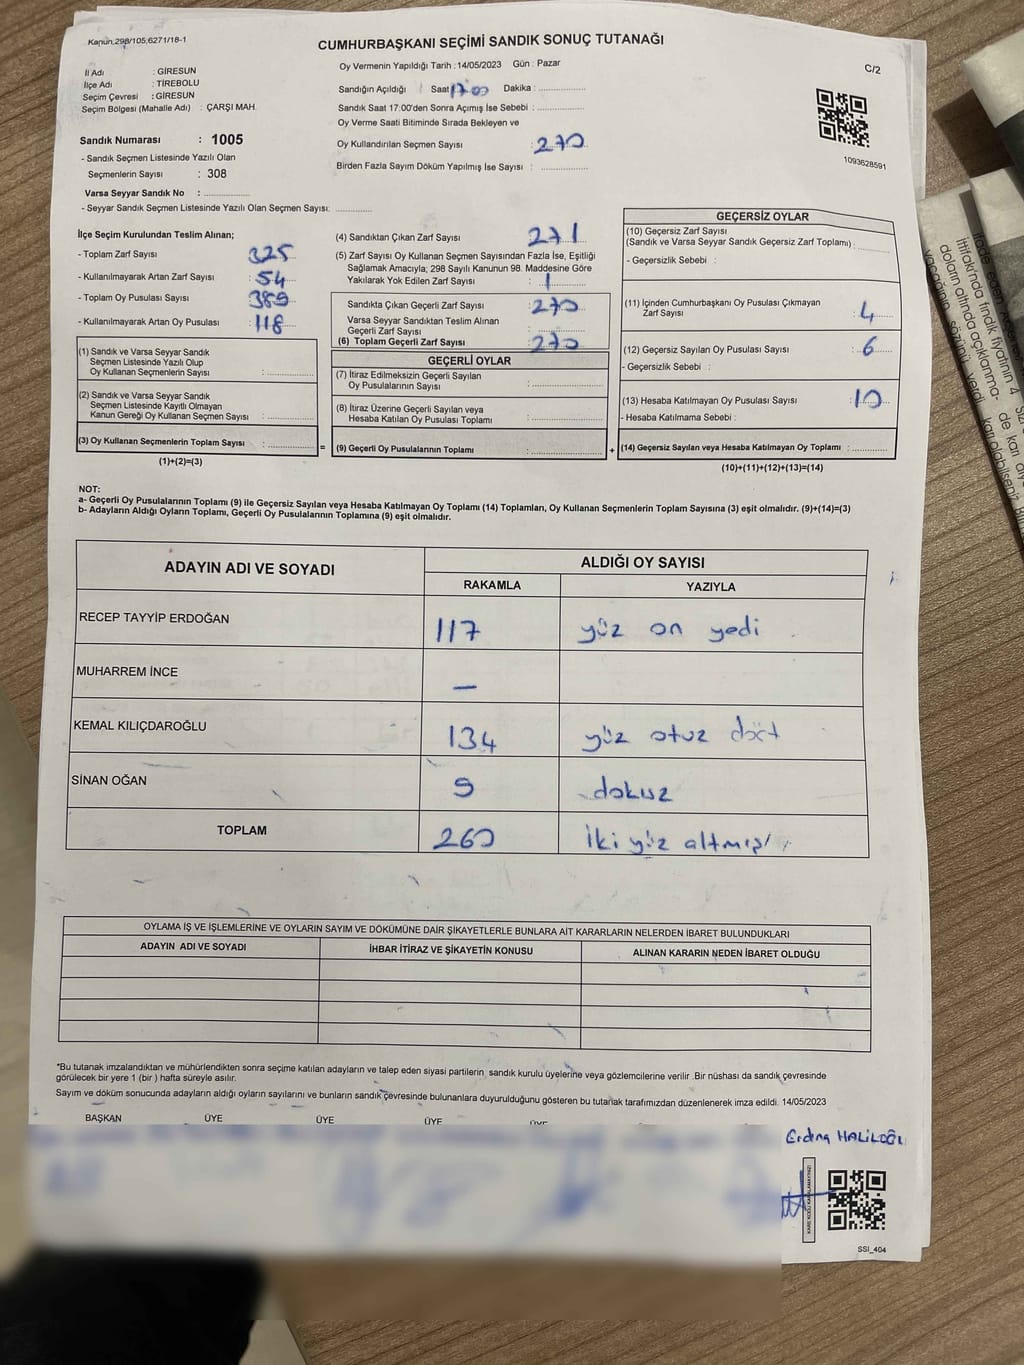 Kanun,298/105,6271/18-1
CUMHURBAŞKANI SEÇİMİ SANDIK SONUÇ TUTANAĞI
C/2
İl Adı : GİRESUN
İlçe Adı : TİREBOLU
Seçim Çevresi : GİRESUN
Seçim Bölgesi (Mahalle Adı) : ÇARŞI MAH.
Sandık Numarası : 1005
- Sandık Seçmen Listesinde Yazılı Olan
Seçmenlerin Sayısı : 308
Varsa Seyyar Sandık No :
- Seyyar Sandık Seçmen Listesinde Yazılı Olan Seçmen Sayısı:
Oy Vermenin Yapıldığı Tarih :14/05/2023 Gün : Pazar
Sandığın Açıldığı Saat 17.00 Dakika :
Sandık Saat 17.00'den Sonra Açılmış İse Sebebi :
Oy Verme Saati Bitiminde Sırada Bekleyen ve
Oy Kullandırılan Seçmen Sayısı : 270
Birden Fazla Sayım Döküm Yapılmış İse Sayısı :
1093628591
İlçe Seçim Kurulundan Teslim Alınan;
- Toplam Zarf Sayısı : 325
- Kullanılmayarak Artan Zarf Sayısı : 54
- Toplam Oy Pusulası Sayısı : 389
- Kullanılmayarak Artan Oy Pusulası : 118
(1) Sandık ve Varsa Seyyar Sandık
Seçmen Listesinde Yazılı Olup
Oy Kullanan Seçmenlerin Sayısı :
(2) Sandık ve Varsa Seyyar Sandık
Seçmen Listesinde Kayıtlı Olmayan
Kanun Gereği Oy Kullanan Seçmen Sayısı :
(3) Oy Kullanan Seçmenlerin Toplam Sayısı : =
(1)+(2)=(3)
(4) Sandıktan Çıkan Zarf Sayısı : 271
(5) Zarf Sayısı Oy Kullanan Seçmen Sayısından Fazla İse, Eşitliği
Sağlamak Amacıyla; 298 Sayılı Kanunun 98. Maddesine Göre
Yakılarak Yok Edilen Zarf Sayısı : 1
Sandıkta Çıkan Geçerli Zarf Sayısı : 270
Varsa Seyyar Sandıktan Teslim Alınan
Geçerli Zarf Sayısı :
(6) Toplam Geçerli Zarf Sayısı : 270
GEÇERLİ OYLAR
(7) İtiraz Edilmeksizin Geçerli Sayılan
Oy Pusulalarının Sayısı :
(8) İtiraz Üzerine Geçerli Sayılan veya
Hesaba Katılan Oy Pusulası Toplamı :
(9) Geçerli Oy Pusulalarının Toplamı : +
GEÇERSİZ OYLAR
(10) Geçersiz Zarf Sayısı
(Sandık ve Varsa Seyyar Sandık Geçersiz Zarf Toplamı) :
- Geçersizlik Sebebi :
(11) İçinden Cumhurbaşkanı Oy Pusulası Çıkmayan
Zarf Sayısı : 4
(12) Geçersiz Sayılan Oy Pusulası Sayısı : 6
- Geçersizlik Sebebi :
(13) Hesaba Katılmayan Oy Pusulası Sayısı : 10
- Hesaba Katılmama Sebebi :
(14) Geçersiz Sayılan veya Hesaba Katılmayan Oy Toplamı :
(10)+(11)+(12)+(13)=(14)
NOT:
a- Geçerli Oy Pusulalarının Toplamı (9) ile Geçersiz Sayılan veya Hesaba Katılmayan Oy Toplamı (14) Toplamları, Oy Kullanan Seçmenlerin Toplam Sayısına (3) eşit olmalıdır. (9)+(14)=(3)
b- Adayların Aldığı Oyların Toplamı, Geçerli Oy Pusulalarının Toplamına (9) eşit olmalıdır.
ADAYIN ADI VE SOYADI
ALDIĞI OY SAYISI
RAKAMLA YAZIYLA
RECEP TAYYİP ERDOĞAN 117 yüz on yedi
MUHARREM İNCE —
KEMAL KILIÇDAROĞLU 134 yüz otuz dört
SİNAN OĞAN 9 dokuz
TOPLAM 260 İki yüz altmış
OYLAMA İŞ VE İŞLEMLERİNE VE OYLARIN SAYIM VE DÖKÜMÜNE DAİR ŞİKAYETLERLE BUNLARA AİT KARARLARIN NELERDEN İBARET BULUNDUKLARI
ADAYIN ADI VE SOYADI İHBAR İTİRAZ VE ŞİKAYETİN KONUSU ALINAN KARARIN NEDEN İBARET OLDUĞU
*Bu tutanak imzalandıktan ve mühürlendikten sonra seçime katılan adayların ve talep eden siyasi partilerin, sandık kurulu üyelerine veya gözlemcilerine verilir .Bir nüshası da sandık çevresinde
görülecek bir yere 1 (bir ) hafta süreyle asılır.
Sayım ve döküm sonucunda adayların aldığı oyların sayılarını ve bunların sandık çevresinde bulunanlara duyurulduğunu gösteren bu tutanak tarafımızdan düzenlenerek imza edildi. 14/05/2023
BAŞKAN ÜYE ÜYE ÜYE ÜYE
SSİ_404